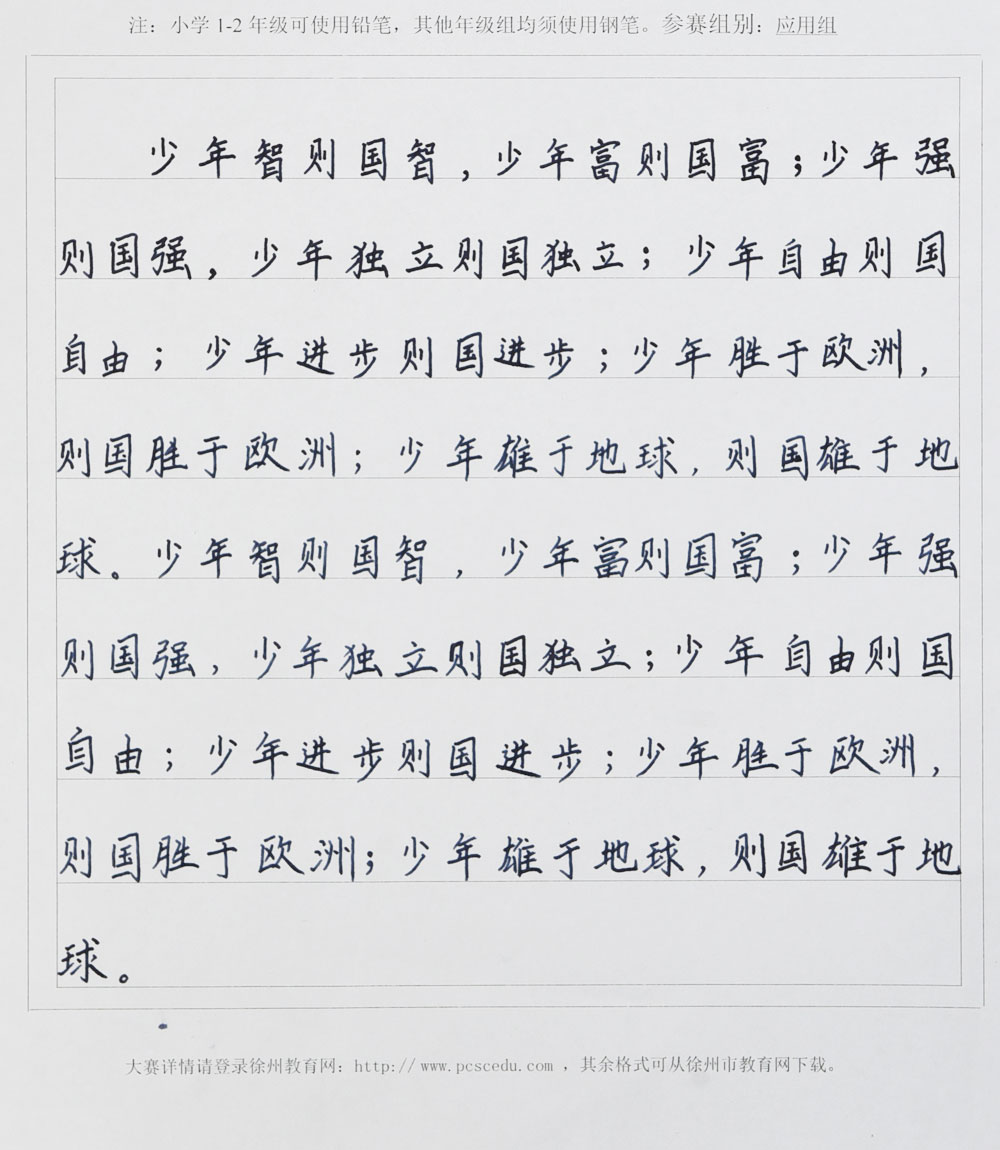 注：小学1-2年级可使用铅笔，其他年级组均须使用钢笔。参赛组别：应用组
少年智则国智，少年富则国富；少年强
则国强，少年独立则国独立；少年自由则国
自由；少年进步则国进步；少年胜于欧洲，
则国胜于欧洲；少年雄于地球，则国雄于地
球。少年智则国智，少年富则国富；少年强
则国强，少年独立则国独立；少年自由则国
自由；少年进步则国进步；少年胜于欧洲，
则国胜于欧洲；少年雄于地球，则国雄于地
球。
大赛详情请登录徐州教育网：http://www.pcscedu.com ，其余格式可从徐州市教育网下载。